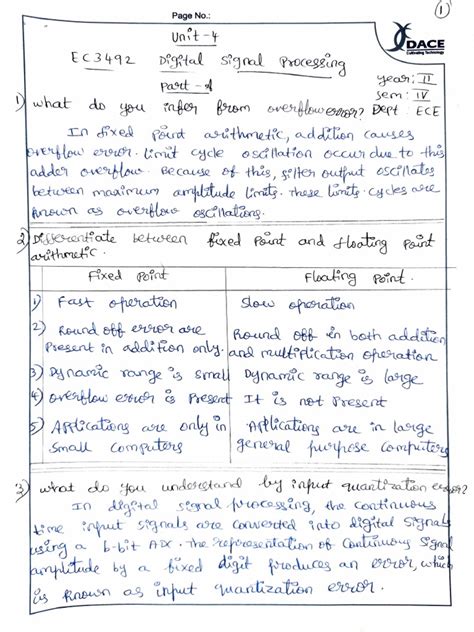 Page No.:
1
Unit-4
DACE
EC3492 Digital Signal Processing
Part-A
year: II
sem: IV
Dept: ECE
1) what do you infer from overflow error?
In fixed point arithmetic, addition causes
overflow error. Limit cycle oscillation occur due to this
adder overflow. Because of this, filter output oscillates
between maximum amplitude limits. These limits cycles are
known as overflow oscillations.
2) Differentiate between fixed point and floating point
arithmetic.
Fixed Point Floating Point.
1) Fast operation Slow operation
2) Round off error are Round off in both addition
Present in addition only. and multiplication operation
3) Dynamic range is small Dynamic range is large
4) Overflow error is Present It is not Present
5) Applications are only in Applications are in large
Small Computers general purpose computers
3) what do you understand by input quantization error?
In digital signal processing, the continuous
time input signals are converted into digital signals
using a b-bit ADC. The representation of Continuous Signal
amplitude by a fixed digit produces an error, which
is known as input quantization error.